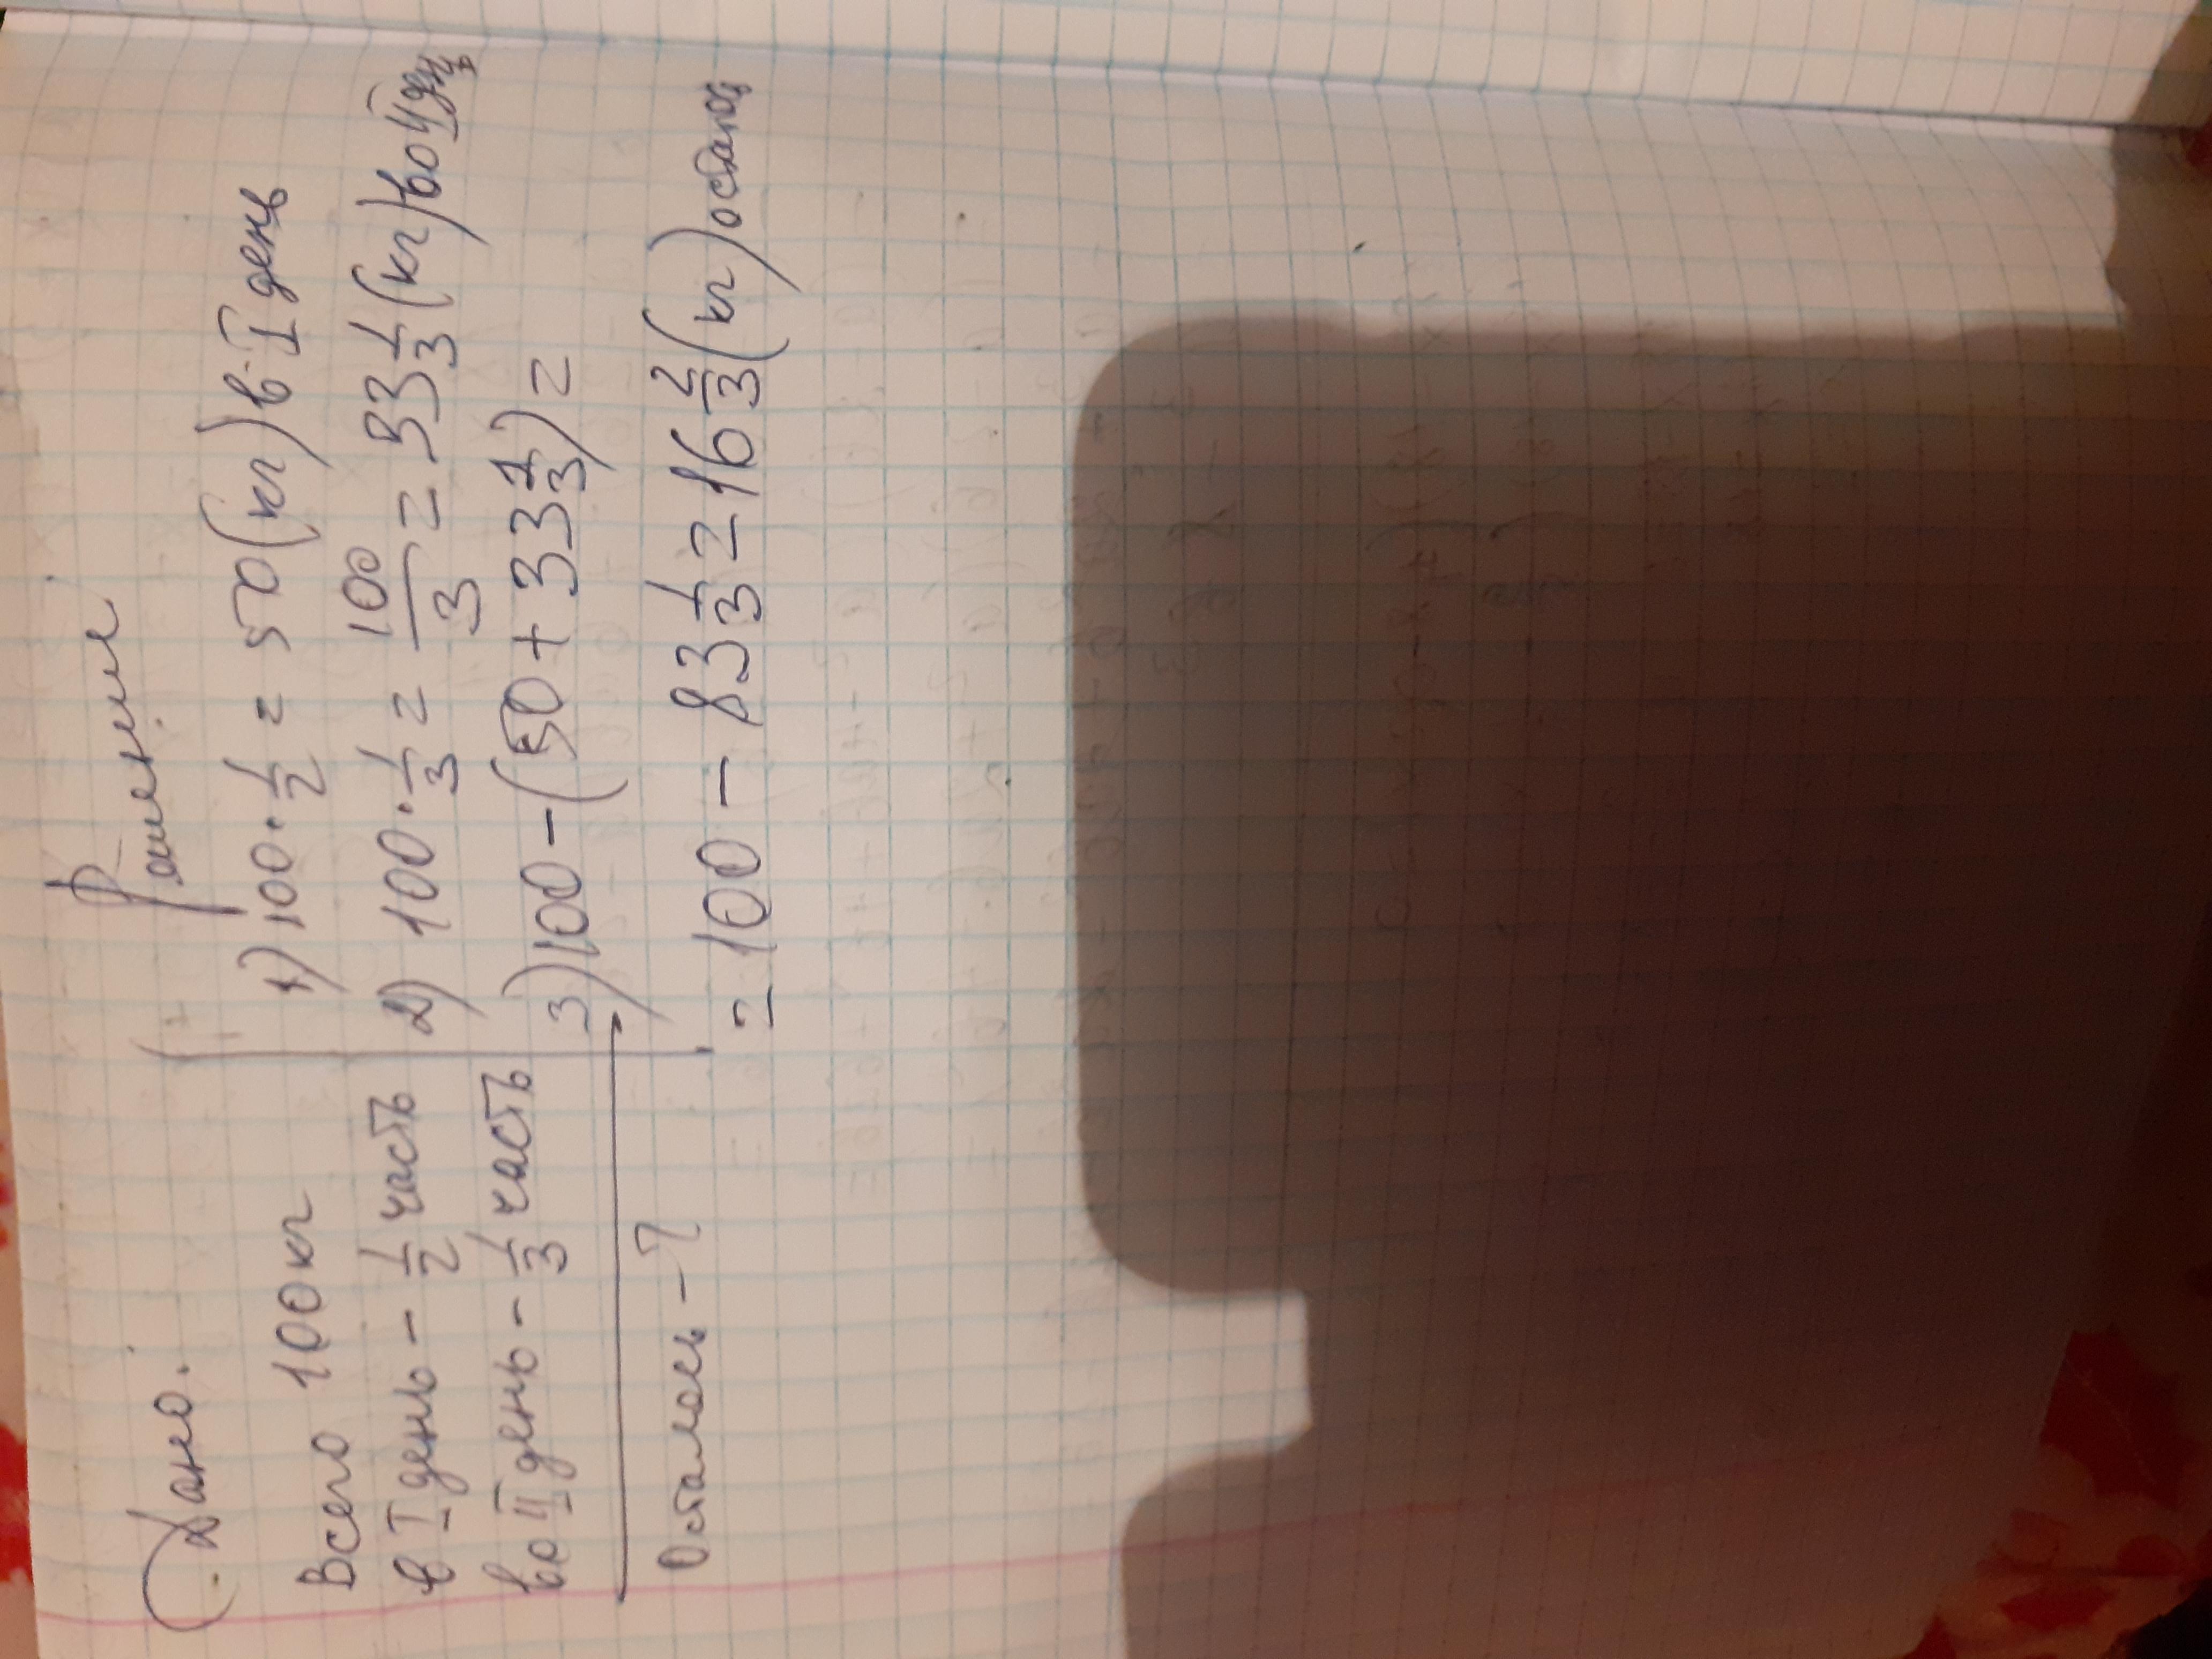 Дано.
Всего 100кг
в I день - 1/2 часть
во II день - 1/3 часть
Осталось - ?
Решение
1) 100 · 1/2 = 50 (кг) в I день
2) 100 · 1/3 = 100/3 = 33 1/3 (кг) во II день
3) 100 - (50 + 33 1/3) =
= 100 - 83 1/3 = 16 2/3 (кг)